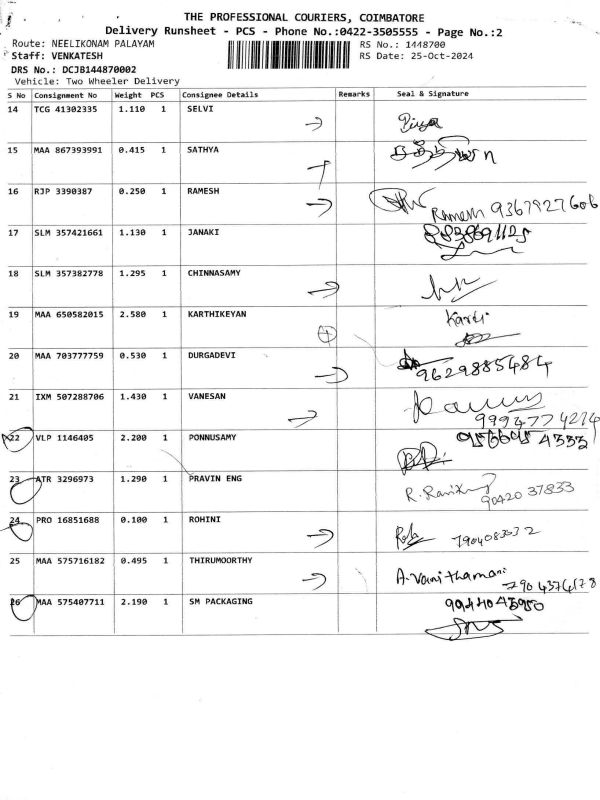 THE PROFESSIONAL COURIERS, COIMBATORE
Delivery Runsheet - PCS - Phone No.:0422-3505555 - Page No.:2
Route: NEELIKONAM PALAYAM RS No.: 1448700
Staff: VENKATESH RS Date: 25-Oct-2024
DRS No.: DCJB144870002
Vehicle: Two Wheeler Delivery
S No Consignment No Weight PCS Consignee Details Remarks Seal & Signature
14 TCG 41302335 1.110 1 SELVI
15 MAA 867393991 0.415 1 SATHYA
16 RJP 3390387 0.250 1 RAMESH Ramesh 9367927606
17 SLM 357421661 1.130 1 JANAKI
18 SLM 357382778 1.295 1 CHINNASAMY
19 MAA 650582015 2.580 1 KARTHIKEYAN
20 MAA 703777759 0.530 1 DURGADEVI 9629885484
21 IXM 507288706 1.430 1 VANESAN 9994774214
22 VLP 1146405 2.200 1 PONNUSAMY
23 ATR 3296973 1.290 1 PRAVIN ENG 90420 37833
24 PRO 16851688 0.100 1 ROHINI
25 MAA 575716182 0.495 1 THIRUMOORTHY A. Vanithamani
26 MAA 575407711 2.190 1 SM PACKAGING